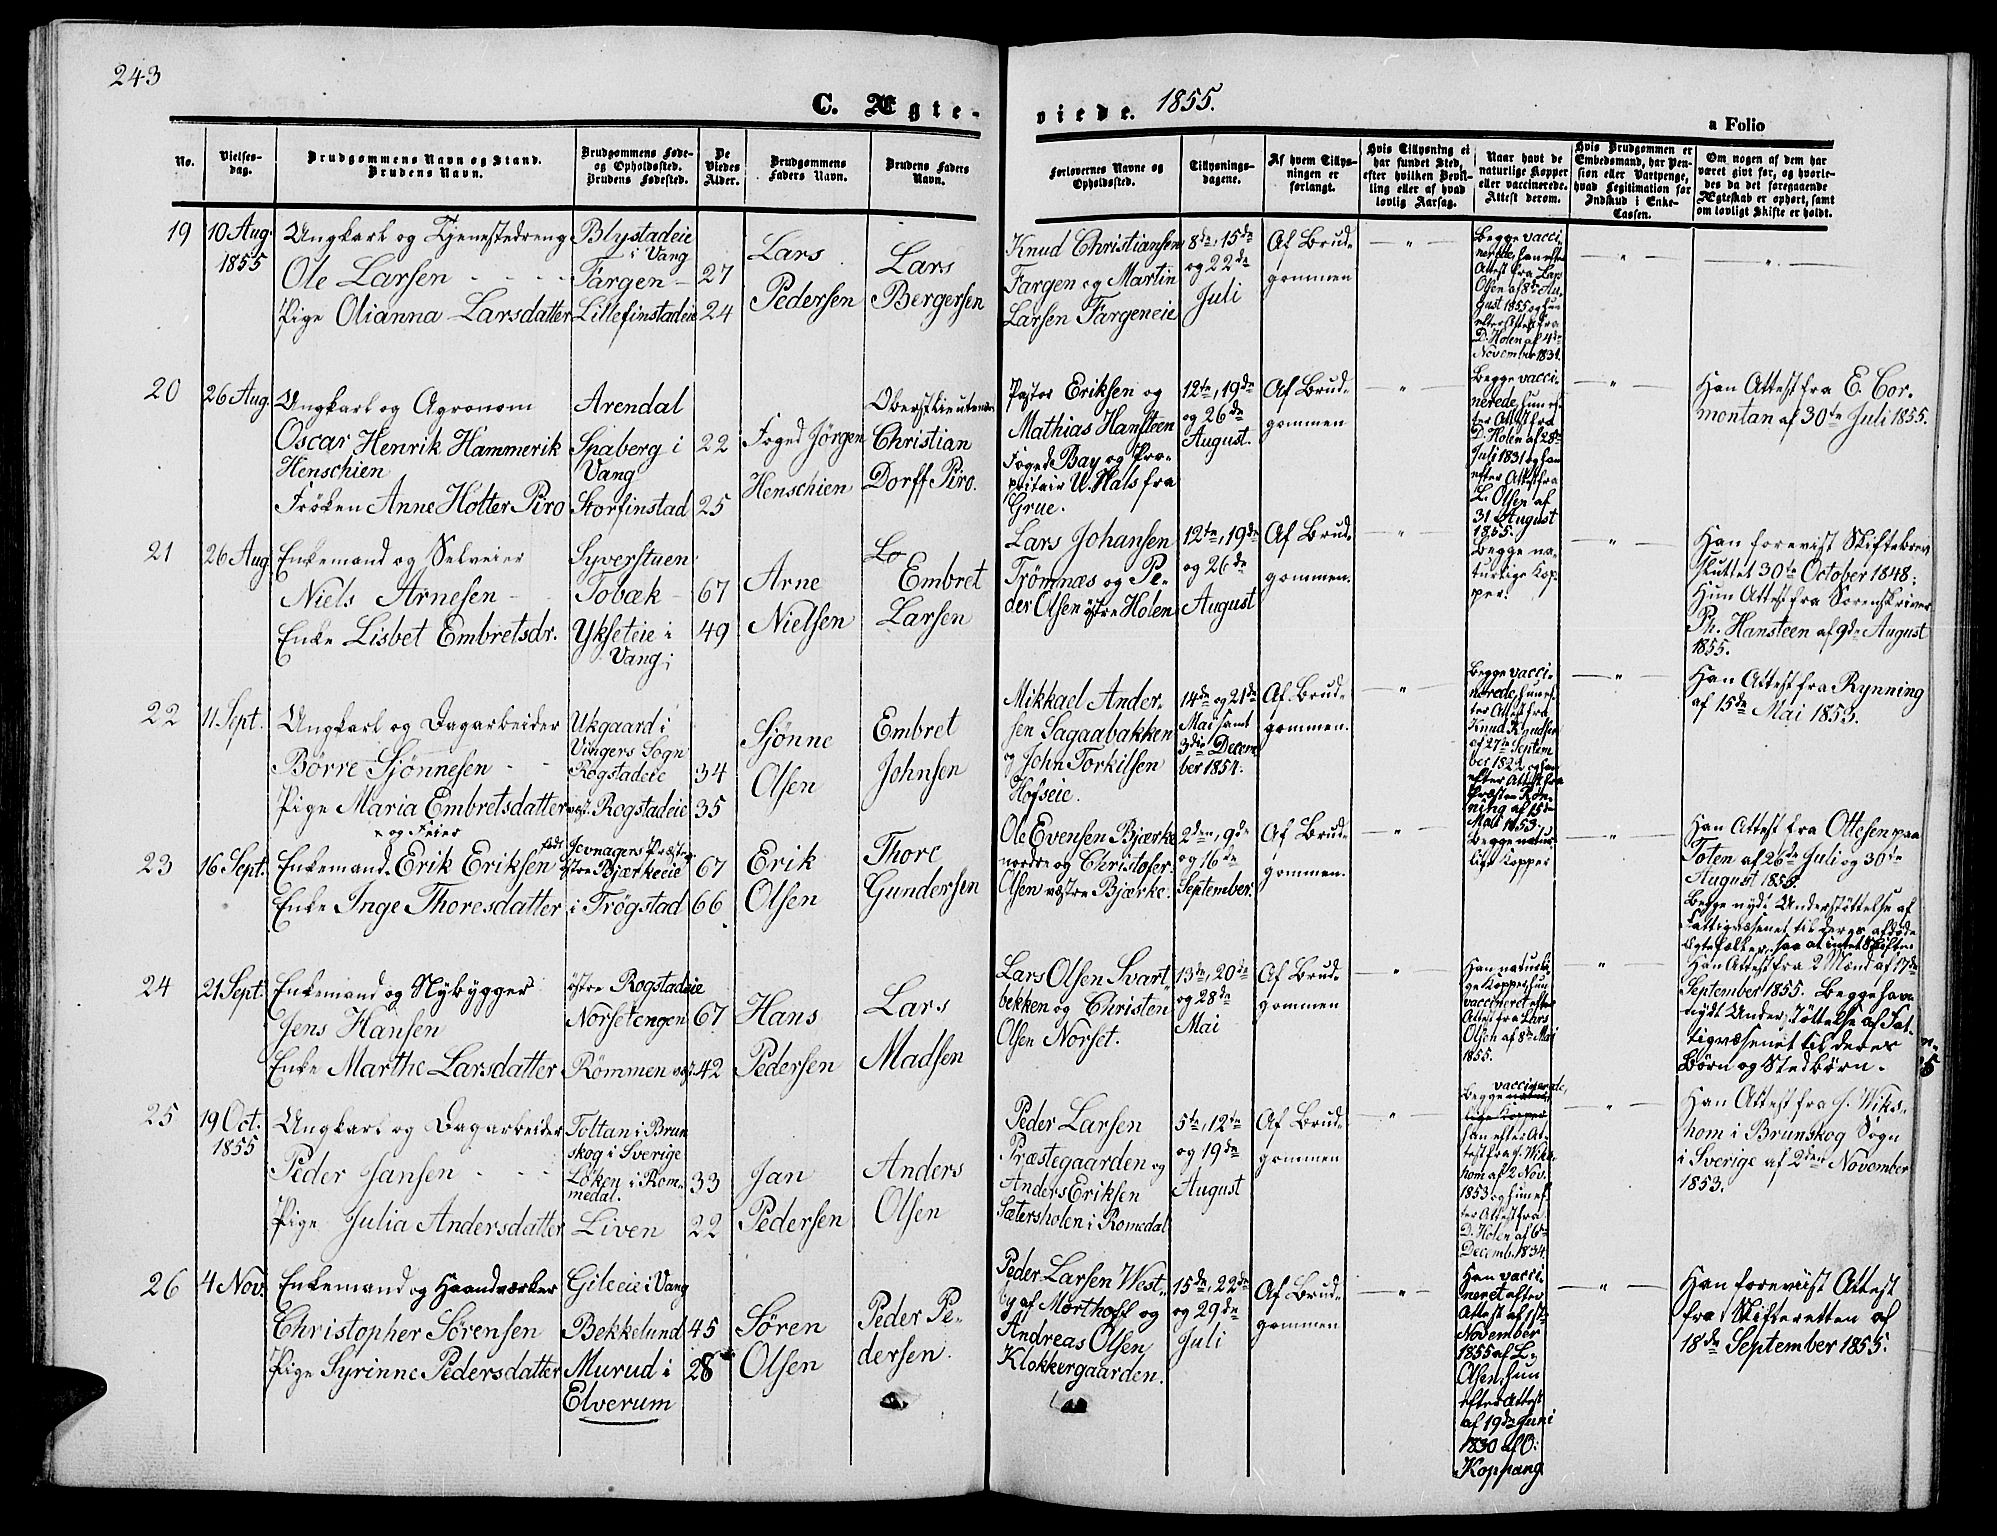 243
C. Ægte-
viede. 1855.
a Folio
No.
Vielses-
dag.
Brudgommens Navn og Stand.
Brudens Navn.
Brudgommens Føde-
og Opholdssted.
Brudens Fødested.
De
Viedes
Alder.
Brudgommens
Faders Navn.
Brudens Faders
Navn.
Forlovernes Navne og
Opholdssted.
Tillysnings-
dagene.
Af hvem Tillys-
ningen er
forlangt.
Hvis Tillysning ei
har fundet Sted,
efter hvilken Bevil-
ling eller af hvad
lovlig Aarsag.
Naar havt de
naturlige Kopper
eller vaccinerede.
Attest derom.
Hvis Brudgommen er
Embedsmand, har Pen-
sion eller Vartpenge,
hvad Legitimation for
Indskud i Enke-
Cassen.
Om nogen af dem har
været givt før, og hvorle-
des da det foregaaende
Ægteskab er ophørt, samt
om lovligt Skifte er holdt.
19
10 Aug.
1855
Ungkarl og Tjenestedreng
Ole Larsen
Pige Olianna Larsdatter
Blystadeie
i Vang
Färgen
Lillefinstadeie
27
24
Lars
Pedersen
Lars
Bergersen
Knud Christiansen
Färgen og Martin
Larsen Färgeneie
8de, 15de
og 22de
Juli
Af Brud-
gommen
Begge vacci-
nerede, han efter
Attest fra Lars
Olsen af 8de Au-
gust 1855 og hun
efter Attest fra
D. Holen af 4de
November 1831.
20
26 Aug.
Ungkarl og Agronom
Oscar Henrik Hammerik
Henschien
Frøken Anne Hotter Piro
Arendal
Spaberg i
Vang
Storfinstad
22
25
Foged Jörgen
Henschien
Oberstlieutenan
Christian
Dorff Piro.
Pastor Eriksen og
Mathias Hansteen
Foged Bay og Pro-
pritair U. Hals fra
Grue.
12te, 19de
og 26de
August.
Af Brud-
gommen
Begge vacci-
nerede, hun ef-
ter Attest fra
D. Holen af 28de
Juli 1831 og han
efter Attest fra
L. Olsen af
31 August
1855.
Han Attest fra E. Cor-
montan af 30te Juli 1855.
21
26 Aug.
Enkemand og Selveier
Niels Arnesen
Enke Lisbet Embretsdr.
Syverstuen
Tobæk
Ykseteie i
Vang
67
49
Arne
Nielsen
Lo
Embret
Larsen
Lars Johansen
Trömnæs og Pe-
der Olsen östre Holen
12te, 19de
og 26de
August
Af Brud-
gommen.
Begge na-
turlige Kop-
per.
Han forevist Skiftebrev
sluttet 30te October 1848;
Hun Attest fra Sorenskriver
Ph. Hansteen af 9de August
1855.
22
11 Sept.
Ungkarl og Dagarbeider
Børre Sjönnesen
Pige Maria Embretsdatter
Ukgaard i
Vingers Sogn
Rogstadeie
vest. Rogstadeie
34
35
Sjönne
Olsen
Embret
Johnsen
Mikkael Ander-
sen Sagaabakken
og John Torkilsen
Hofseie.
14de og 21de
Mai samt
3die Decem
ber 1854.
Af Brud-
gommen.
Begge vacci-
nerede, hun ef-
ter Attest fra
Knud Knudsen
af 27de Septem
ber 1822 og han
efter Attest fra
Præsten Ryn-
ning af 15de
Mai 1853.
Han Attest fra Rynning
af 15de Mai 1853.
23
16 Sept.
og Feier
Enkemand Erik Eriksen
Enke Inge Thoresdatter
født Jevnagers Præstg
østre Bjærkeeie
i Trögstad
67
66
Erik
Olsen
Thore
Gundersen
Ole Evensen Bjærke
nordre og Christofer
Olsen væstre Bjærke.
2den, 9de
og 16de
September.
Af Brud-
gommen.
Begge natur-
lige Kopper
Han Attest fra Ottesen paa
Toten af 26de Juli og 30de
August 1855.
Begge nydt Understöttelse af
Fattigvæsenet til deres afdöde
Ægtefælker, saa at intet Skifte.
24
21 Sept.
Enkemand og Nybygger
Jens Hansen
Enke Marthe Larsdatter
østre Rogstadeie
Norsetengen
Römmen
67
42
Hans
Pedersen
Lars
Madsen
Lars Olsen Svart-
bekken og Christen
Olsen Norset.
13de, 20de
og 28de
Mai
Af Brud-
gommen
Han naturli-
ge Kopper, hun
vaccineret efter
Attest fra Lars
Olsen af 8de Mai
1855.
Han Attest fra 2 Mænd af 17de
September 1855. Begge have
nydt Understöttelse af Fat-
tigvæsenet til deres
Börn og Stedbörn.
25
19 Oct.
1855
Ungkarl og Dagarbeider
Peder Jansen
Pige Julia Andersdatter
Tottan i Brun
skog i Sverige
Løken i Rom-
medal.
Liven
33
22
Jan
Pedersen
Anders
Olsen
Peder Larsen
Præstegaarden og
Anders Eriksen
Sætersholen i Romedal
5te, 12te
og 19de
August
Af Brud-
gommen
vaccinerede,
Begge natur-
lige Kopper
han efter At-
test fra J. Wiks-
hom af 2 Nov.
1853 og hun ef-
ter Attest fra
D. Holen af 6de
Decemb. 1834.
Han Attest fra J. Wiks-
hom i Brunskog Sogn
i Sverige af 2den November
1853.
26
4 Nov.
Enkemand og Haandværker
Christopher Sörensen
Pige Syrinne Pedersdatter
Gileeie i Vang
Bekkelund
Murud i
Elverum
45
28
Sören
Olsen
Peder Pe-
dersen.
Peder Larsen West-
by af Morthoff og
Andreas Olsen
Klokkergaarden.
15de, 22de
og 29de
Juli
Af Brud-
gommen
Han vacci-
neret efter
Attest af 1ste
November
1855 af L.
Olsen, hun
efter Attest
af 19de Juni
1830 af O.
Koppang
Han foreviist Attest
fra Skifteretten af
18de September 1855.